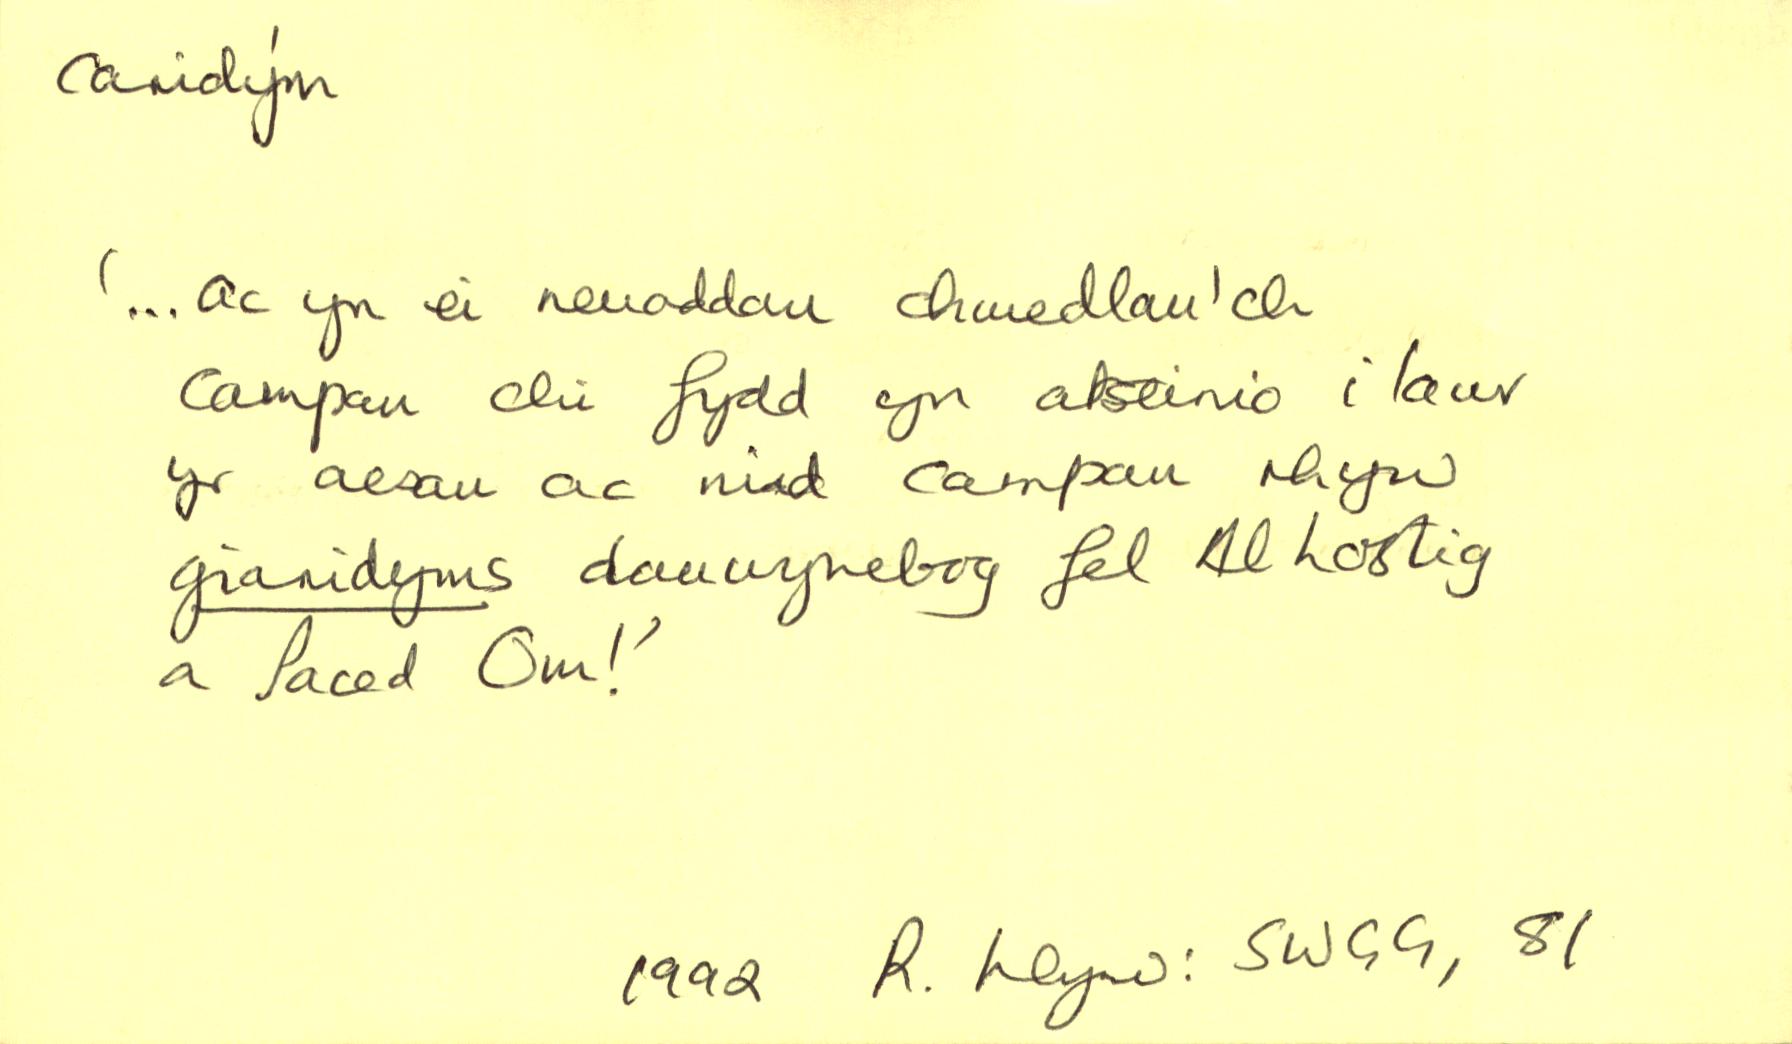 caridým
'... ac yn ei neuaddau chwedlau'ch
campau chi fydd yn atseinio i lawr
yr aesau ac nid campau rhyw
giaridyms dauwynebog fel Al hostig
a Paced Om!'
1992 R. Llyw: SWGG, 81